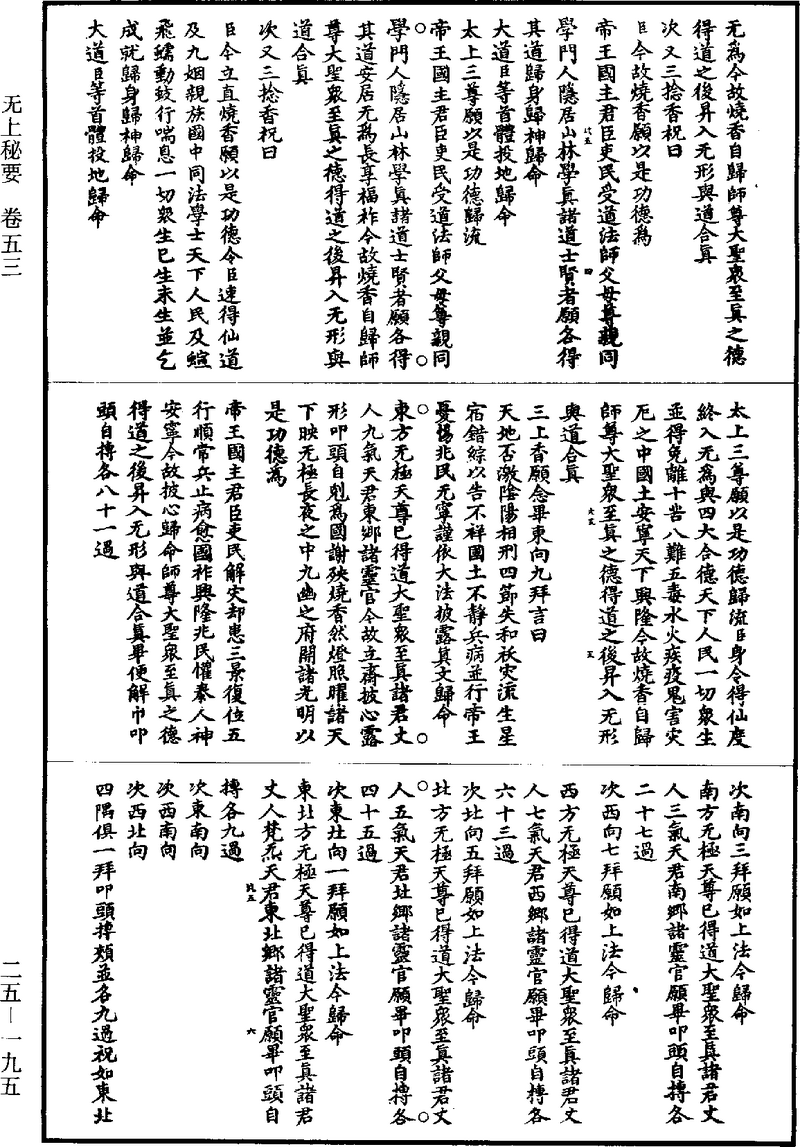 无上秘要　卷五三
二五—一九五
无為今故燒香自歸師尊大聖衆至真之德
得道之後昇入无形與道合真
次又三捻香祝曰
臣今故燒香願以是功德為
帝王國主君臣吏民受道法師父母尊親同
學門人隱居山林學真諸道士賢者願各得
其道歸身歸神歸命
大道臣等首體投地歸命
太上三尊願以是功德歸流
帝王國主君臣吏民受道法師父母尊親同
學門人隱居山林學真諸道士賢者願各得
其道安居无為長享福祚今故燒香自歸師
尊大聖衆至真之德得道之後昇入无形與
道合真
次又三捻香祝曰
臣今立直燒香願以是功德令臣速得仙道
及九姻親族國中同法學士天下人民及蝖
飛蠕動蚑行喘息一切衆生已生未生並乞
成就歸身歸神歸命
大道臣等首體投地歸命
太上三尊願以是功德歸流臣身令得仙度
終入无為與四大合德天下人民一切衆生
並得免離十苦八難五毒水火疾疫鬼害灾
厄之中國土安寧天下興隆今故燒香自歸
師尊大聖衆至真之德得道之後昇入无形
與道合真
三上香願念畢東向九拜言曰
天地否激陰陽相刑四節失和祅灾流生星
宿錯綜以告不祥國土不靜兵病並行帝王
憂惕兆民无寧謹依大法披露真文歸命
東方无極天尊已得道大聖衆至真諸君丈
人九氣天君東鄉諸靈官今故立齋披心露
形叩頭自剋為國謝殃燒香然燈照曜諸天
下映无極長夜之中九幽之府開諸光明以
是功德為
帝王國主君臣吏民解灾却患三景復位五
行順常兵止病愈國祚興隆兆民懽泰人神
安寧今故披心歸命師尊大聖衆至真之德
得道之後昇入无形與道合真畢便解巾叩
頭自搏各八十一過
次南向三拜願如上法今歸命
南方无極天尊已得道大聖衆至真諸君丈
人三氣天君南鄉諸靈官願畢叩頭自搏各
二十七過
次西向七拜願如上法今歸命
西方无極天尊已得道大聖衆至真諸君丈
人七氣天君西鄉諸靈官願畢叩頭自搏各
六十三過
次北向五拜願如上法今歸命
北方无極天尊已得道大聖衆至真諸君丈
人五氣天君北鄉諸靈官願畢叩頭自搏各
四十五過
次東北向一拜願如上法今歸命
東北方无極天尊已得道大聖衆至真諸君
丈人梵炁天君東北鄉諸靈官願畢叩頭自
搏各九過
次東南向
次西南向
次西北向
四隅俱一拜叩頭搏頰並各九過祝如東北